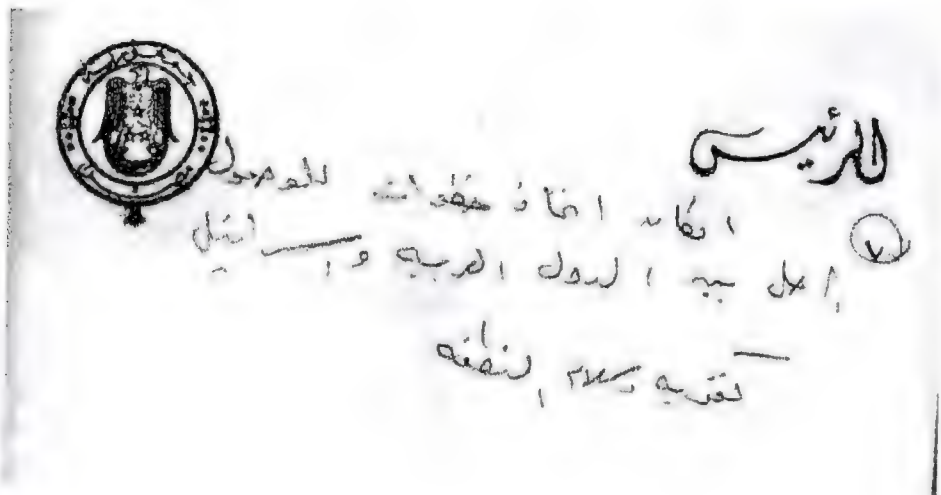 الرئيس
٧ امكان اتخاذ خطوات للوصول
بين الدول العربية واسرائيل
سلام المنطقة